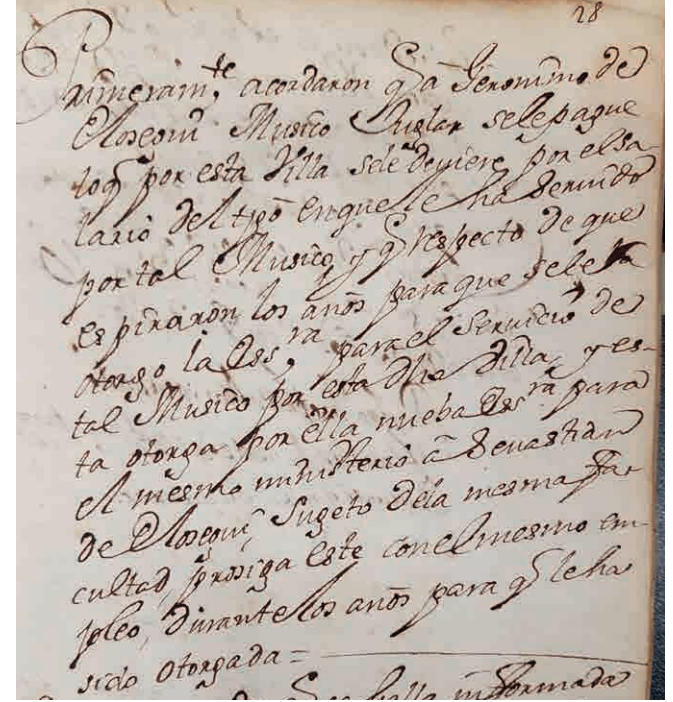 28
Primeramte, acordaron q a Jeronimo de
Eloseguí Musico Juglar sele pague
loq por esta Villa sele deviere por el sa-
lario del tpō enque le ha servido
por tal Musico, y q respecto de que
espiraron los años para que sele
otorgo la Essra, para el servicio de
tal Musico por esta dha Villa, y es-
ta otorga por ella nueba Essra para
el mesmo ministerio â Sevastian
de Eloseguí, sugeto dela mesma fa-
cultad, prosiga este con el mesmo em-
pleo, durante los años para q le ha
sido otorgada =
q se halla informada